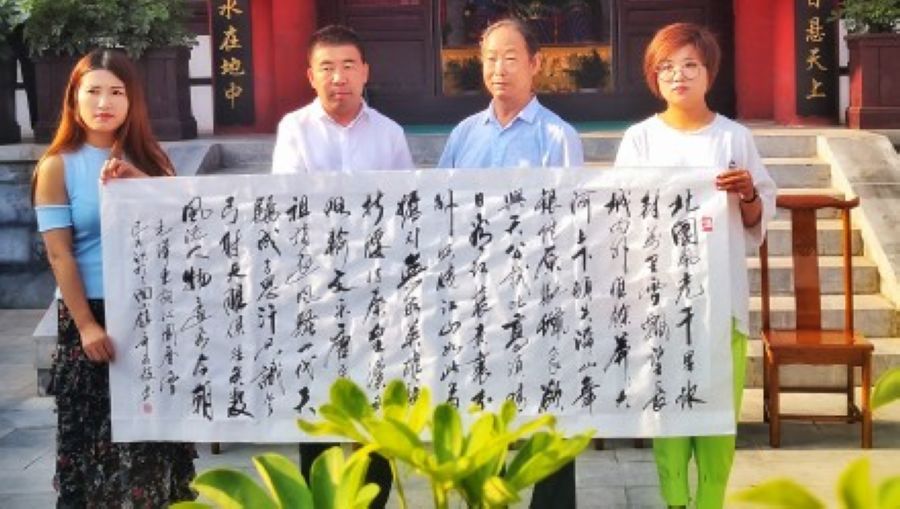 日悬天上
水在地中
北國風光千里冰
封万里雪飘望长
城内外惟餘莽〻大
河上下顿失滔〻山舞
银蛇原驰蜡象欲
與天公试比高须晴
日看红装素裹分
外妖娆江山如此多
娇引無数英雄竞
折腰惜秦皇汉武
略输文采唐宗宋
祖稍逊风骚一代天
骄成吉思汗只识弯
弓射大雕俱往矣数
風流人物还看今朝
毛泽东词沁園春雪